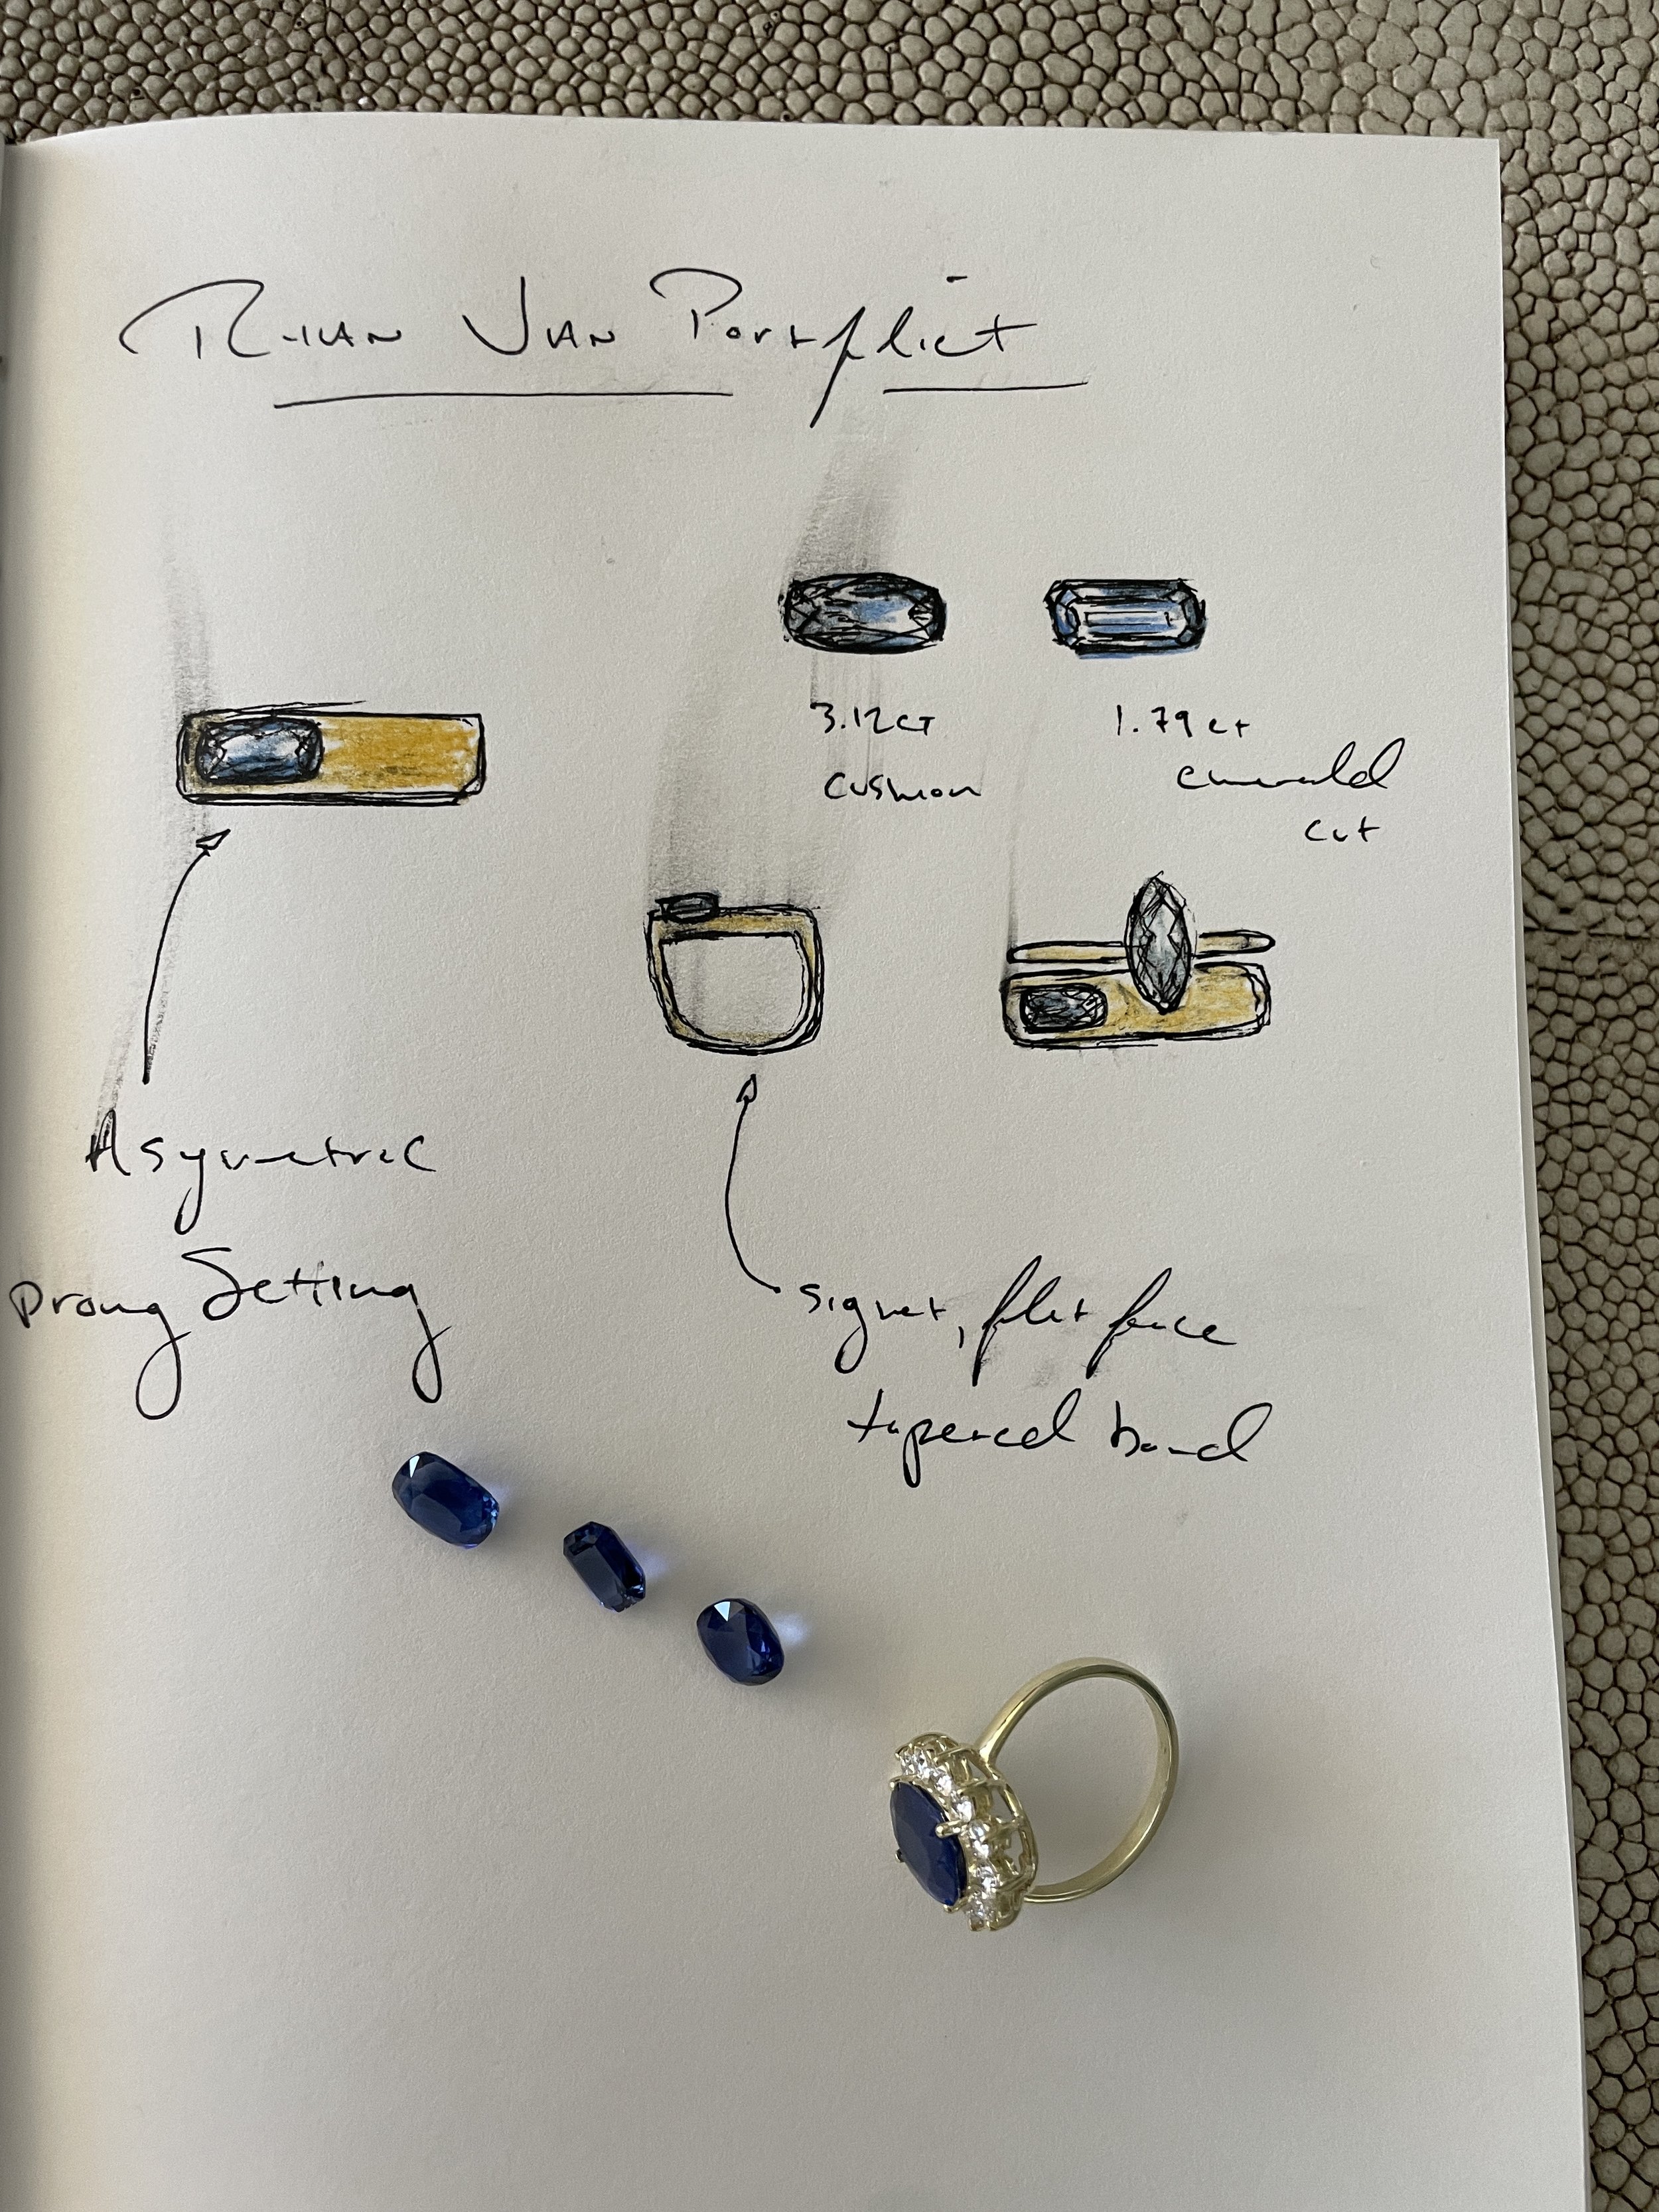 Van Portfliet
3.12ct
cushion
1.79ct
emerald
cut
Asymetric
prong Setting
signet, flat face
tapered band